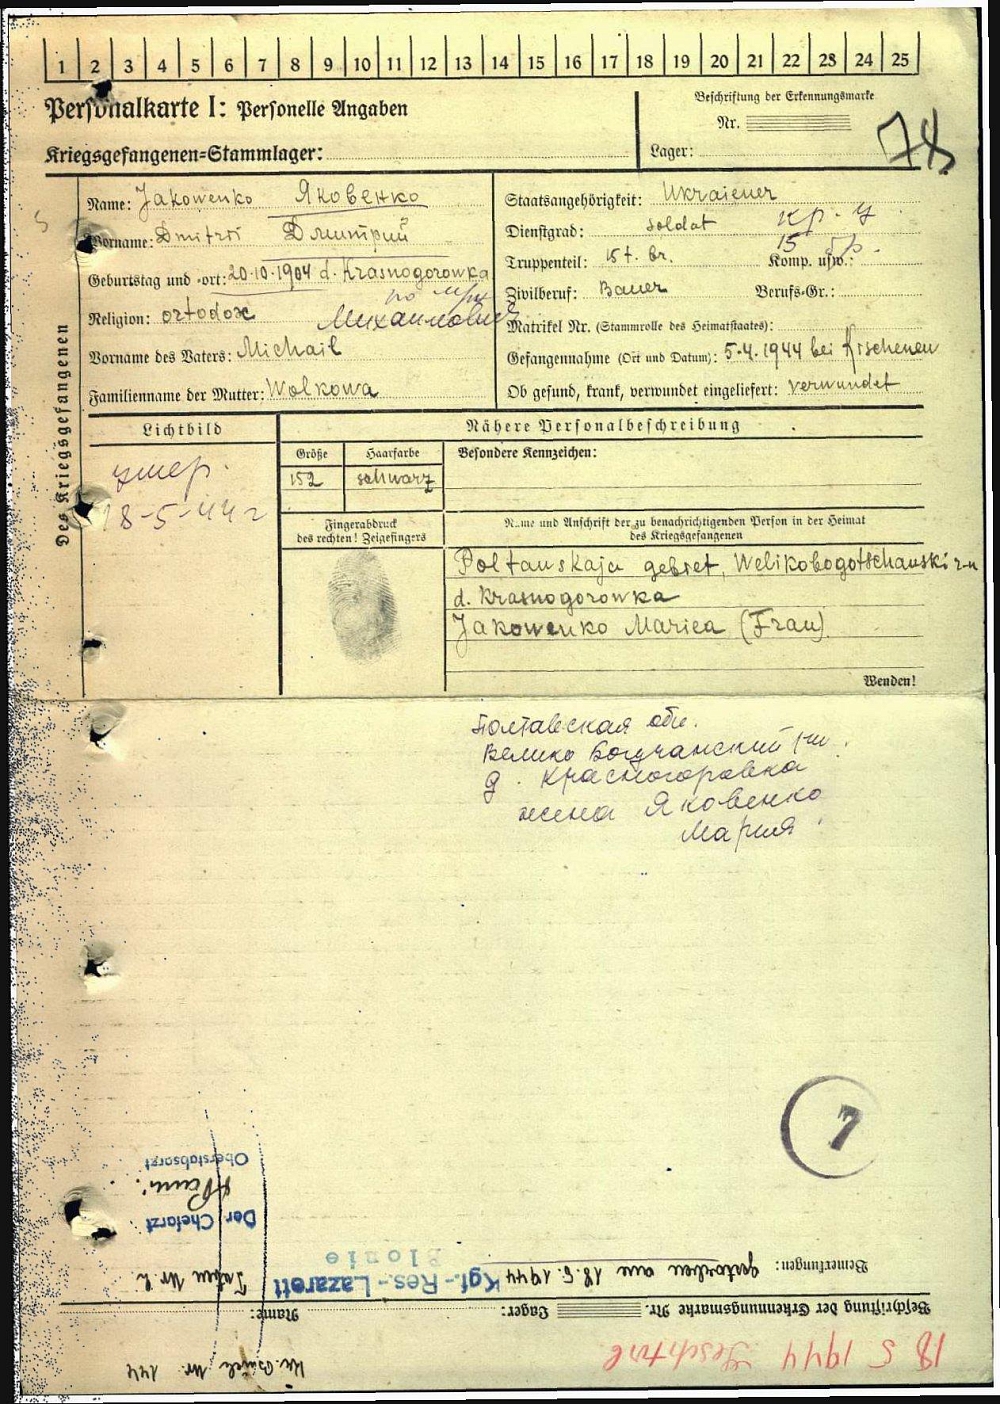 1 2 3 4 5 6 7 8 9 10 11 12 13 14 15 16 17 18 19 20 21 22 23 24 25
Personalkarte I: Personelle Angaben
Kriegsgefangenen=Stammlager:
Beschriftung der Erkennungsmarke
Nr.
Lager:
Des Kriegsgefangenen
Name: Jakowenko Яковенко
Vorname: Dmitri Дмитрий
Geburtstag und -ort: 20.10.1904 d. Krasnogorowka
Religion: ortodox
Михайлович
Vorname des Vaters: Michail
Familienname der Mutter: Wolkowa
Staatsangehörigkeit: Ukraiener
Dienstgrad: Soldat
Truppenteil: 15 t. br. Komp. usw.:
15
Zivilberuf: Bauer Berufs-Gr.:
Matrikel Nr. (Stammrolle des Heimatstaates):
Gefangennahme (Ort und Datum): 5.4.1944 bei Kischenew
Ob gesund, krank, verwundet eingeliefert: verwundet
Lichtbild
умер.
18-5-44 г
Nähere Personalbeschreibung
Größe Haarfarbe Besondere Kennzeichen:
152 schwarz
Fingerabdruck
des rechten! Zeigefingers
Name und Anschrift der zu benachrichtigenden Person in der Heimat
des Kriegsgefangenen
Poltauskaja gebiet, Welikobogotschauski r-n
d. Krasnogorowka
Jakowenko Mariea (Frau)
Wenden!
Полтавская обл.
Велико Богучанский р-н.
д. Красногоровка
жена Яковенко
Мария
7
Oberstabsarzt
Der Chefarzt
Bemerkungen: gestorben am 18.5.1944 Kgf.-Res.-Lazarett
Blonie
Beschriftung der Erkennungsmarke Nr. Lager: Name:
18 5 1944
Nr. 144